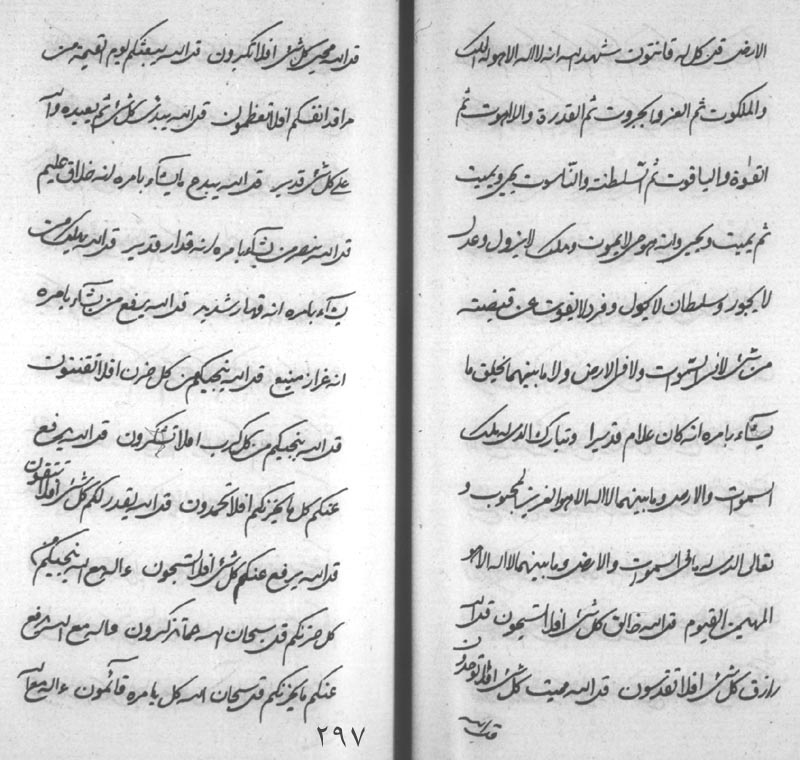 الارض قل كل له قانتون شهد الله انه لا اله الا هو له الملك
والملكوت ثم العز والجبروت ثم القدرة واللاهوت ثم
القوة والياقوت ثم السلطنة والناسوت يحيي ويميت
ثم يميت ويحيي وانه هو حي لا يموت وملك لا يزول وعدل
لا يجور وسلطان لا يحول وفرد لا يفوت عن قبضته
من شئ لا في السموات ولا في الارض ولا ما بينهما يخلق ما
يشاء بامره انه كان علام قديرا وتبارك الذي له ملك
السموات والارض وما بينهما لا اله الا هو العزيز المحبوب و
تعالى الذي له ما في السموات والارض وما بينهما لا اله الا هو
المهيمن القيوم قل الله خالق كل شئ افلا تسبحون قل الله
رازق كل شئ افلا تقدسون قل الله مميت كل شئ افلا توحدون
قل الله
قل الله محيي كل شئ افلا تكبرون قل الله يبعثكم يوم القيمة من
مراقد انفسكم افلا تعظمون قل الله يبدئ كل شئ ثم يعيده والله
على كل شئ قدير قل الله يبدع ما يشاء بامره انه خلاق عليم
قل الله ينصر من يشاء بامره انه قدار قدير قل الله يهلك من
يشاء بامره انه قهار شديد قل الله يرفع من يشاء بامره
انه عزاز منيع قل الله ينجيكم من كل حزن افلا تقنتون
قل الله ينجيكم من كل كرب افلا تشكرون قل الله يرفع
عنكم كل ما يحزنكم افلا تحمدون قل الله يقدر لكم كل شئ افلا تتقون
قل الله يرفع عنكم كل شئ افلا تسجدون ءاله مع الله ينجيكم من
كل حزنكم قل سبحان الله عما تذكرون ءاله مع الله يرفع
عنكم ما يحزنكم قل سبحان الله كل بامره قائمون ءاله مع الله
٢٩٧